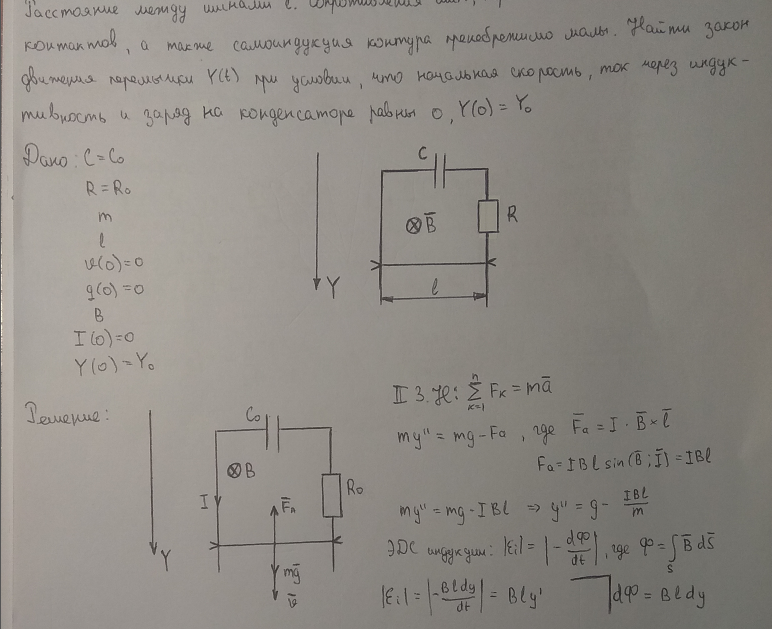 Расстояние между шинами l.
контактов, а также самоиндукция контура пренебрежимо малы. Найти закон
движения перемычки Y(t) при условии, что начальная скорость, ток через индук-
тивность и заряд на конденсаторе равны 0, Y(0) = Y₀
Дано: C = C₀
R = R₀
m
l
v(0)=0
q(0)=0
B
I(0)=0
Y(0)=Y₀
C
⊗B̄
R
Y
l
Решение:
C₀
⊗B
R₀
I
F̄A
Y
mḡ
v̄
II З.Н: ∑ₖ₌₁ⁿ Fₖ = mā
my'' = mg - Fa, где F̄a = I · B̄ × l̄
Fa = IBl sin(B̄; Ī) = IBl
my'' = mg - IBl ⇒ y'' = g - IBl/m
ЭДС индукции: |εi| = |-dφ/dt|, где φ = ∫ₛ B̄ ds̄
|εi| = |-Bldy/dt| = Bly' dφ = Bldy